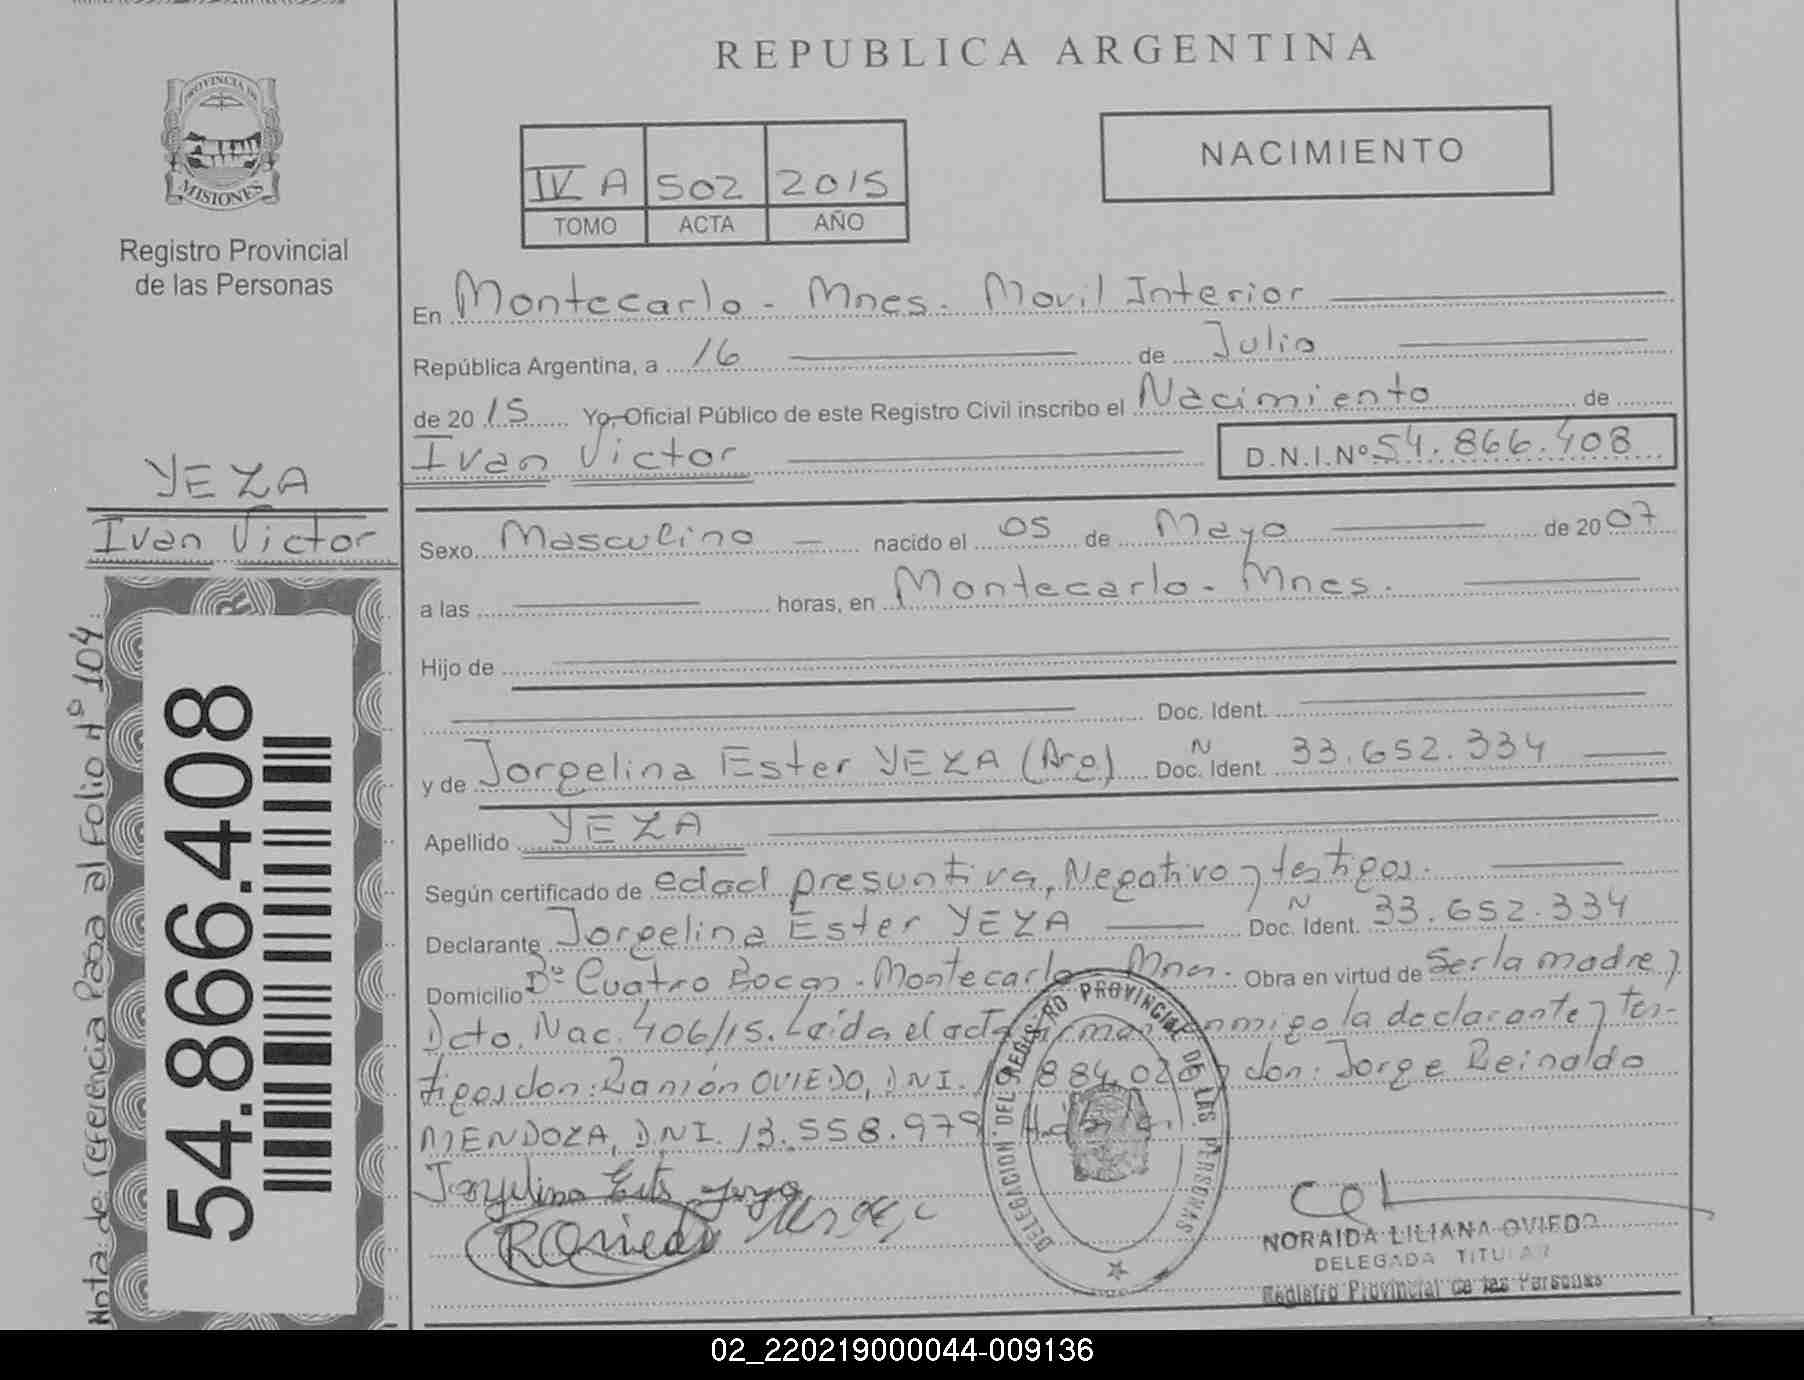 REPUBLICA ARGENTINA
PROVINCIA DE
MISIONES
Registro Provincial
de las Personas
NACIMIENTO
IV A 502 2015
TOMO ACTA AÑO
En Montecarlo - Mnes. Movil Interior
República Argentina, a 16 de Julio
de 20 15 Yo, Oficial Público de este Registro Civil inscribo el Nacimiento de
Ivan Victor D.N.I.Nº 54.866.408
YEZA
Ivan Victor
Sexo Masculino nacido el 05 de Mayo de 2007
a las horas, en Montecarlo - Mnes.
Hijo de
Doc. Ident.
y de Jorgelina Ester YEZA (Arg) Doc. Ident. N 33.652.334
Apellido YEZA
Según certificado de edad presuntiva, Negativo y testigos.
Declarante Jorgelina Ester YEZA Doc. Ident. N 33.652.334
Domicilio Bº Cuatro Bocas - Montecarlo Mnes. Obra en virtud de Ser la madre y
Dcto. Nac. 406/15. Leída el acta firman conmigo la declarante y tes-
tigos don: Ramón OVIEDO, DNI. 884.028 y don: Jorge Reinaldo
MENDOZA, DNI. 13.558.979
Nota de referencia Pasa al Folio Nº 104.
54.866.408
DELEGACION DEL REGISTRO PROVINCIAL DE LAS PERSONAS
NORAIDA LILIANA OVIEDO
DELEGADA TITULAR
Registro Provincial de las Personas
02_220219000044-009136